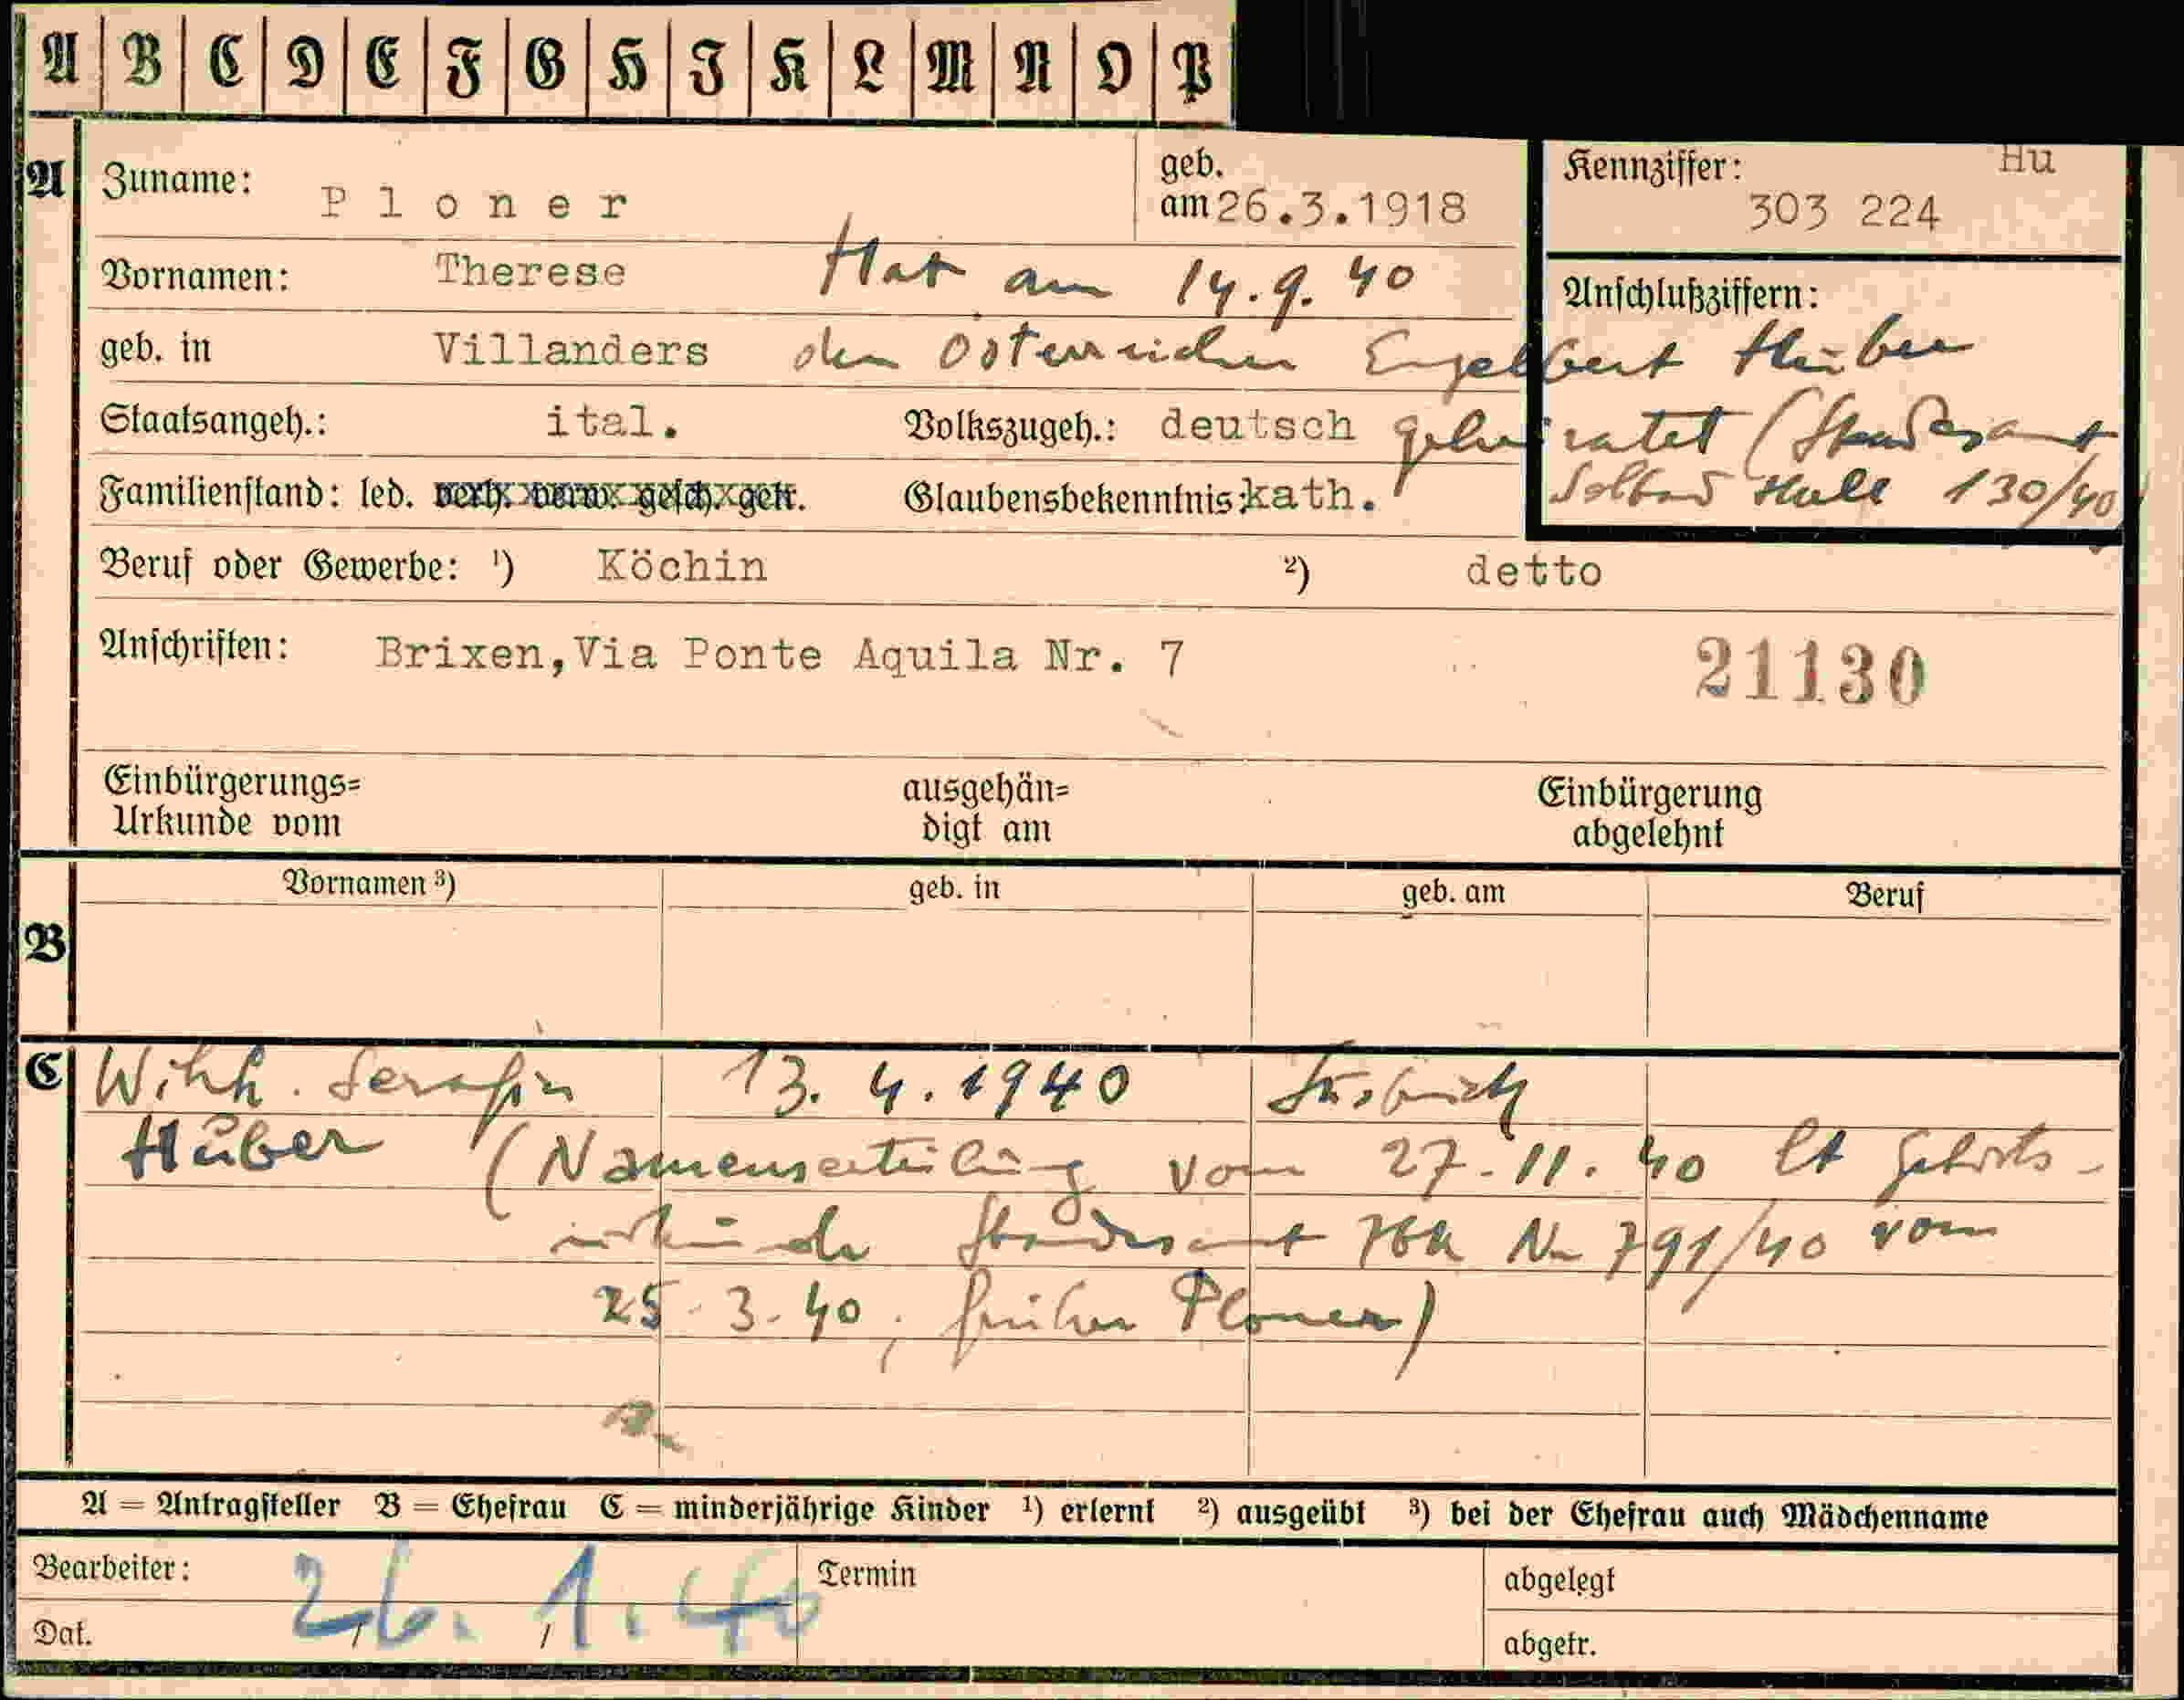 A B C D E F G H J K L M N O P
A
Zuname: Ploner
geb. am 26.3.1918
Kennziffer: Hu
303 224
Vornamen: Therese
Hat am 14.9.40
Anschlußziffern:
geb. in Villanders
den Österreicher Engelbert Huber
Staatsangeh.: ital. Volkszugeh.: deutsch
geheiratet (Standesamt
Familienstand: led. verh. verw. gesch. getr. Glaubensbekenntnis: kath.
Solbad Hall 130/40
Beruf oder Gewerbe: ¹) Köchin ²) detto
Anschriften: Brixen, Via Ponte Aquila Nr. 7
21130
Einbürgerungs= Urkunde vom
ausgehän= digt am
Einbürgerung abgelehnt
B
Vornamen ³) geb. in geb. am Beruf
C
Wilh. Serafin 13. 4. 1940
Huber (Namenserteilung vom 27.11.40 lt Geburts-
urkunde Standesamt Nr 791/40 vom
25.3.40, früher Ploner)
A = Antragsteller B = Ehefrau C = minderjährige Kinder ¹) erlernt ²) ausgeübt ³) bei der Ehefrau auch Mädchenname
Bearbeiter:
26.1.40
Termin
abgelegt
Dat.
abgetr.